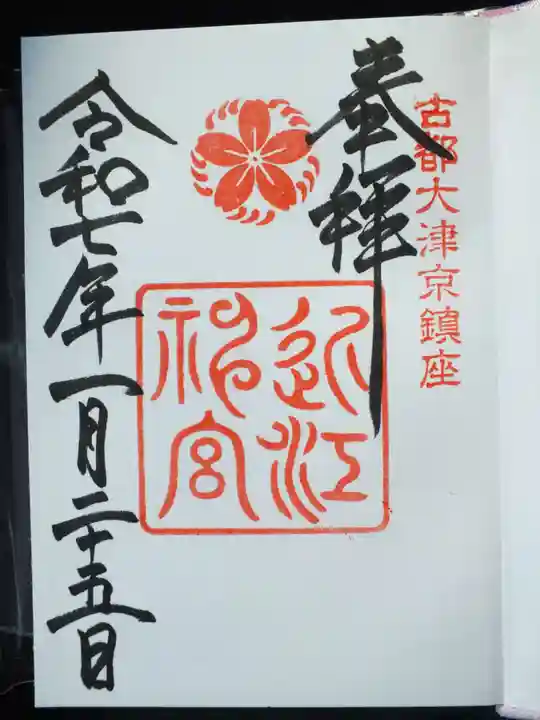 古都大津京鎮座
奉拝
近江
神宮
令和七年一月二十五日